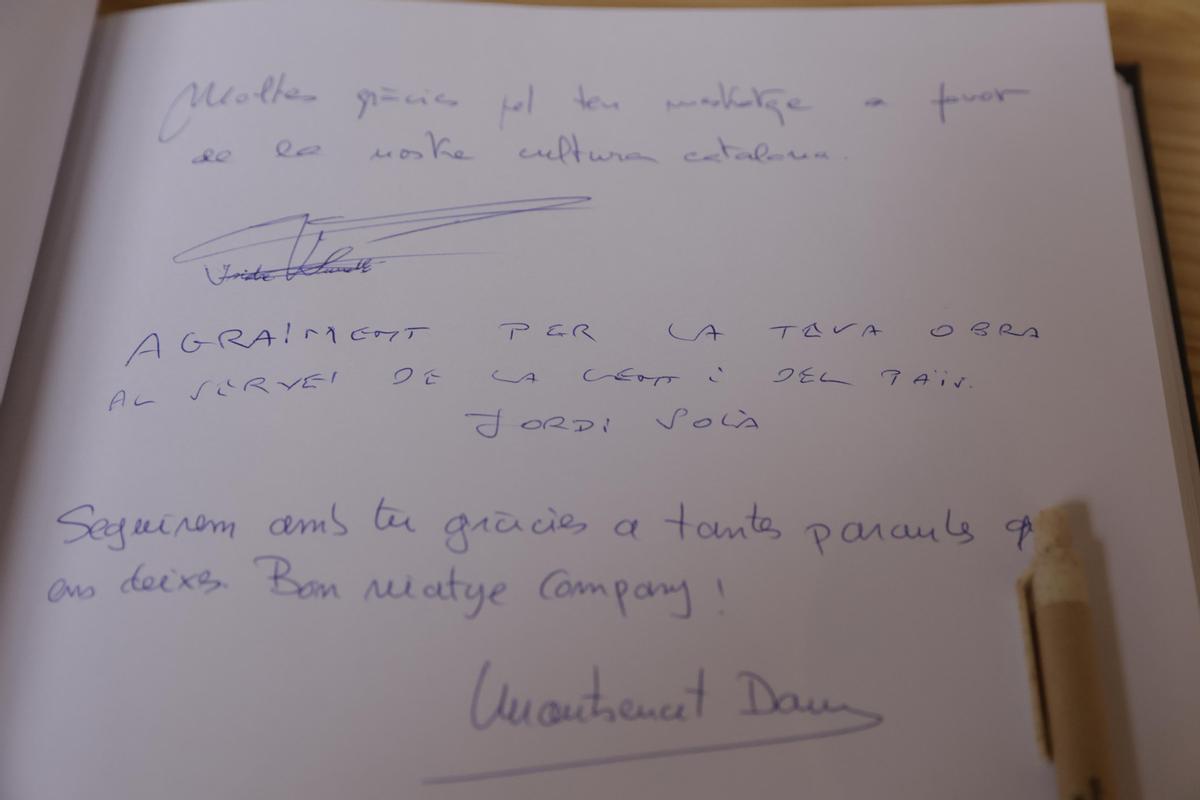 Moltes gràcies pel teu mestratge a favor
de la nostre cultura catalana.
AGRAIMENT PER LA TEVA OBRA
AL SERVEI DE LA GENT I DEL PAÏS.
JORDI SOLÀ
Seguirem amb tu gràcies a tantes paraules q
ens deixes. Bon viatge Company!
Montserrat